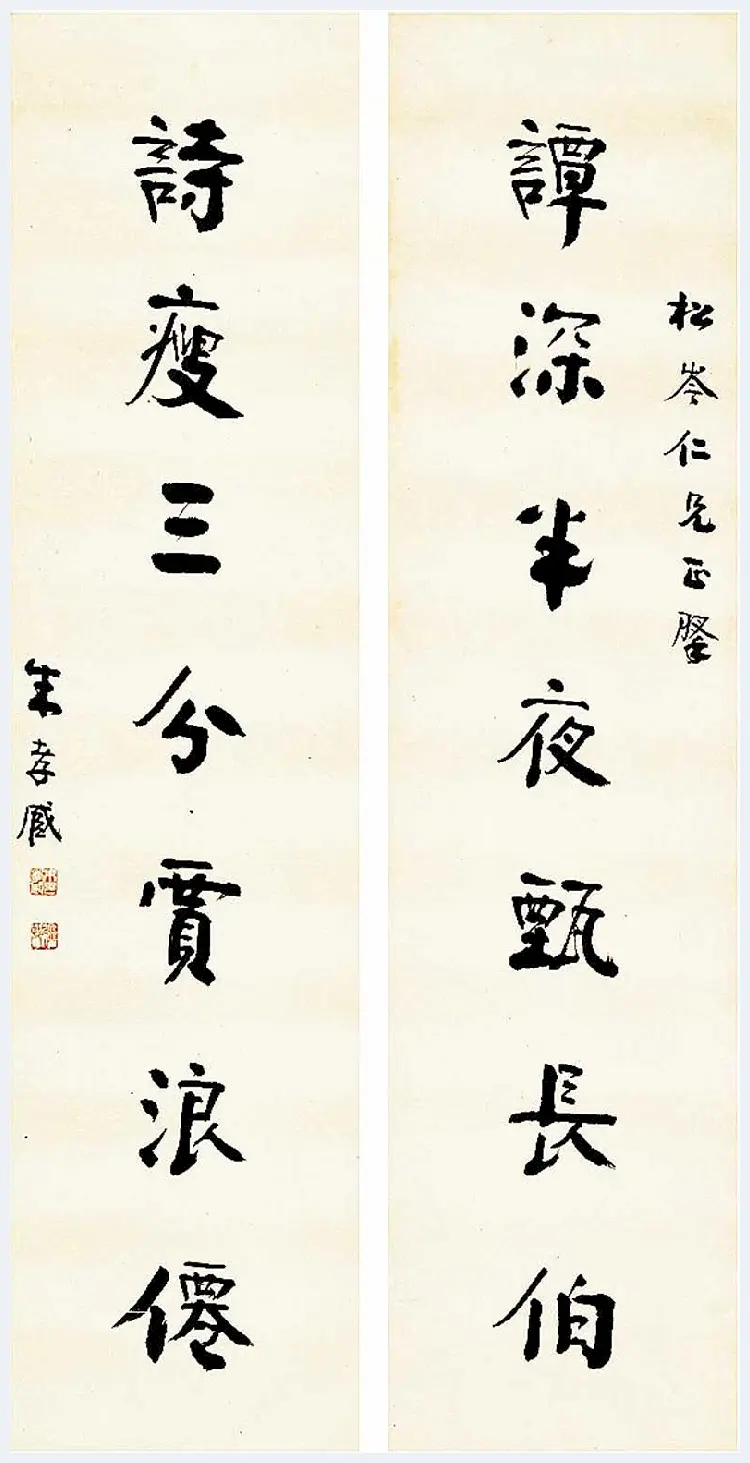 松岑仁兄正擥
譚深半夜甄長伯
詩瘦三分賈浪僊
朱孝臧